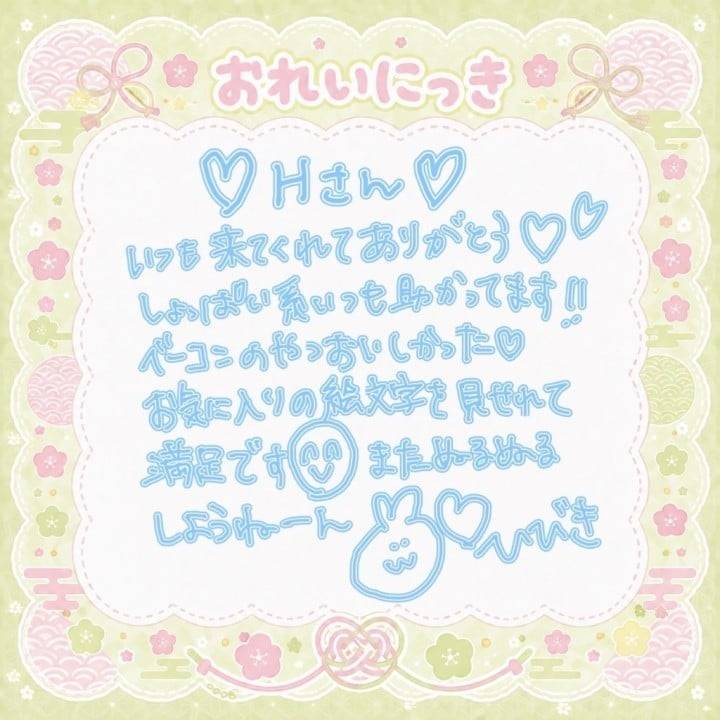 おれいにっき
♡Hさん♡
いつも来てくれてありがとう♡♡
しょっぱい系いつも助かってます!!
ベーコンのやつおいしかった♡
お気に入りの絵文字を見せれて
満足です またぬるぬる
しようねーん ♡ひびき